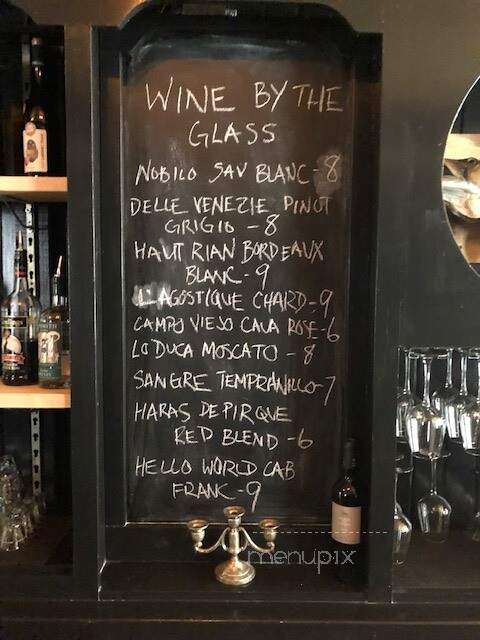 WINE BY THE
GLASS
NOBILO SAV BLANC - 8
DELLE VENEZIE PINOT
GRIGIO - 8
HAUT RIAN BORDEAUX
BLANC - 9
L'AGOSTIQUE CHARD - 9
CAMPO VIEJO CAVA ROSE - 6
LODUCA MOSCATO - 8
SANGRE TEMPRANILLO - 7
HARAS DE PIRQUE
RED BLEND - 6
HELLO WORLD CAB
FRANC - 9
menupix